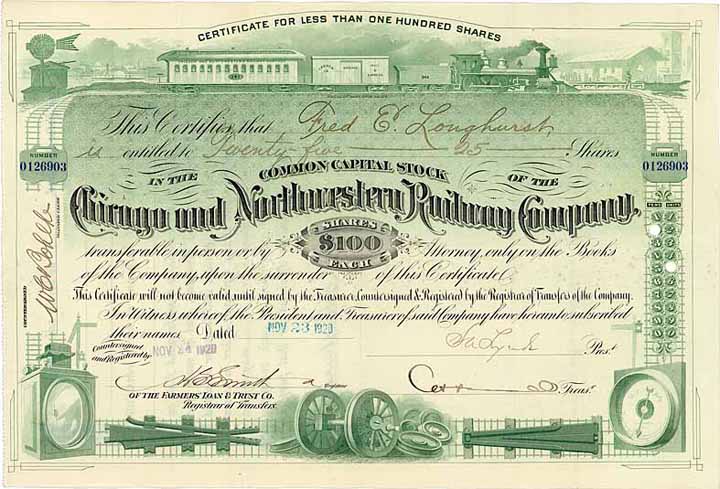 CERTIFICATE FOR LESS THAN ONE HUNDRED SHARES
This Certifies that Fred E. Longhurst
is entitled to Twenty five 25 Shares
NUMBER
0126903
NUMBER
0126903
IN THE COMMON CAPITAL STOCK OF THE
Chicago and Northwestern Railway Company,
SHARES
$100
EACH
transferable in person or by Attorney, only on the Books
of the Company, upon the surrender of this Certificate.
This Certificate will not become valid until signed by the Treasurer, Countersigned & Registered by the Registrar of Transfers of the Company.
In Witness whereof the President and Treasurer of said Company have hereunto subscribed
their names. Dated NOV 23 1920
Countersigned and Registered by NOV 24 1920
Pres't
Treas.
OF THE FARMERS' LOAN & TRUST CO.
Registrar of Transfers.
COUNTERSIGNED
TENS UNITS